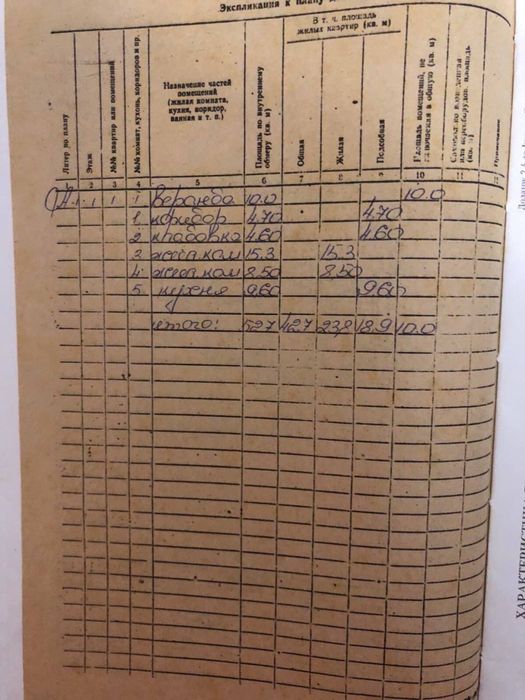 Экспликация к плану
Литер по плану
Этаж
№№ квартир или помещений
№№ комнат, кухонь, коридоров и пр.
Назначение частей помещений (жилая комната, кухня, коридор, ванная и т. п.)
Площадь по внутреннему обмеру (кв. м)
В т. ч. площадь жилых квартир (кв. м)
Общая
Жилая
Подсобная
Площадь помещений, не включенная в общую (кв. м)
1 2 3 4 5 6 7 8 9 10 11 12
1 1 1 веранда 10.0 10.0
1 коридор 4.70 4.70
2 кладовка 4.60 4.60
3 жил. ком 15.3 15.3
4 жил. ком 8.50 8.50
5 кухня 9.60 9.60
итого: 52.7 42.7 23.8 18.9 10.0